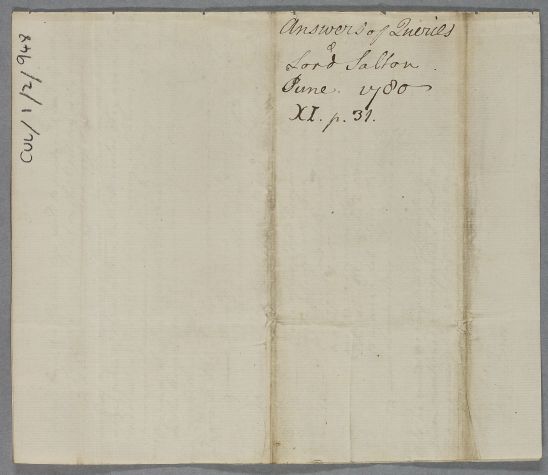 Answers of Queries
&
Lord Salton.
June. 1780
XI. p. 31.
CUL/1/2/948